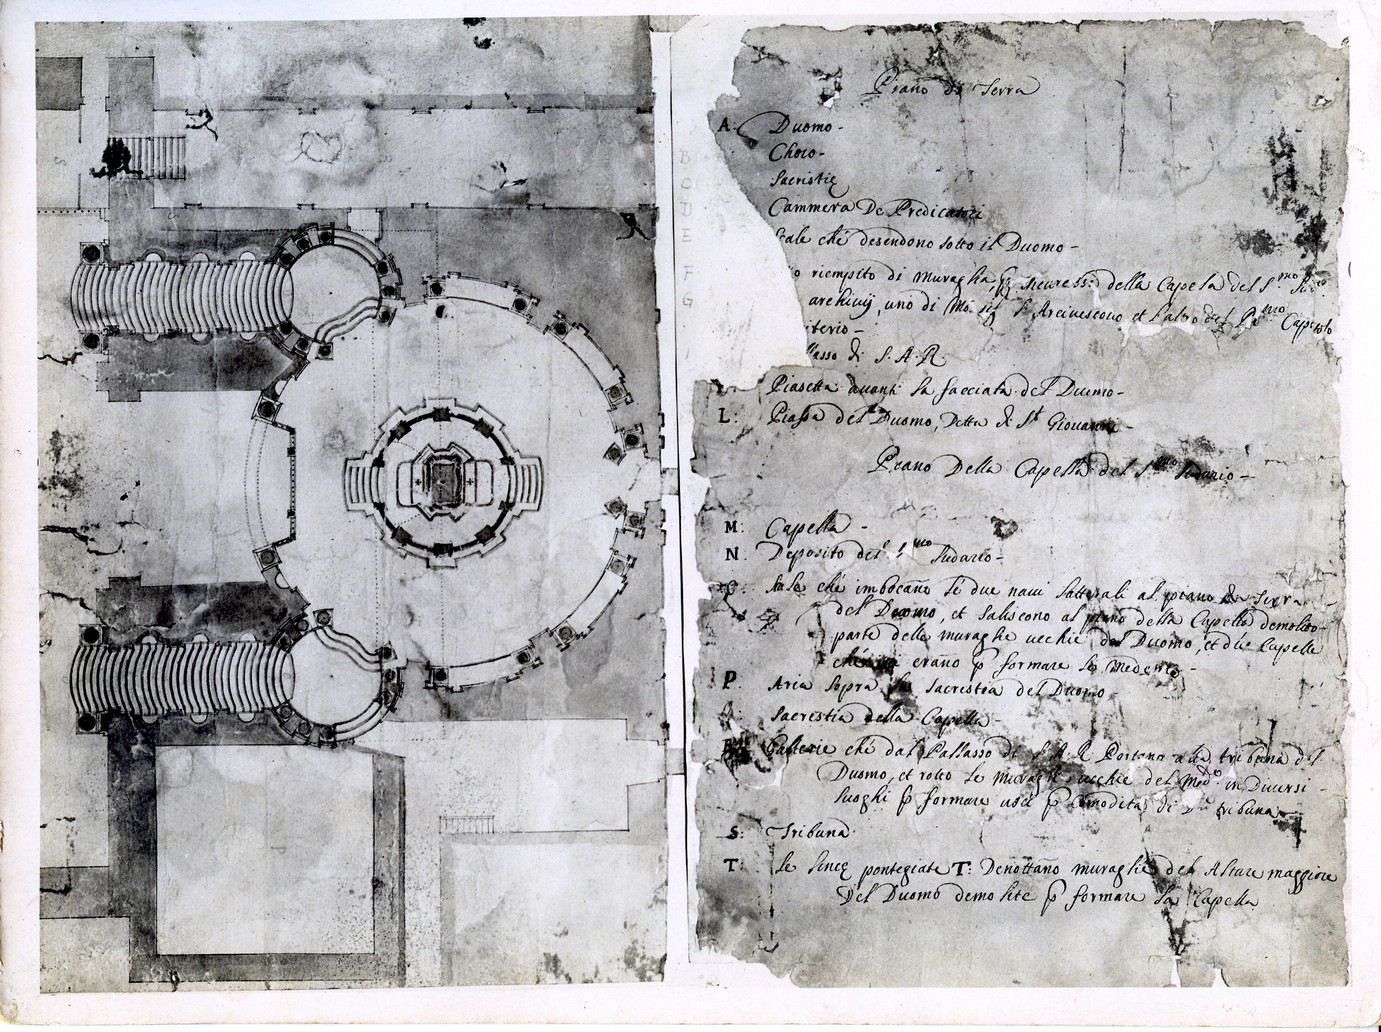 Piano di Terra
A. Duomo-
Choro-
Sacristie
Cammera De Predicatori
Scale che desendono sotto il Duomo-
riempito di Muraglia p sicuressa della Capela del S.mo
archivij, uno di Mo. sig. Arcivescovo et l'altro del Capitolo
iterio-
llasso di S.A.R.
Piasetta avanti la facciata del Duomo-
L. Piassa del Duomo, Detta di S.t Giovanni-
Piano Della Capella del S.mo Sudario-
M. Capella-
N. Deposito del S.mo Sudario-
che imboccano le due navi latterali al piano di Terra
del Duomo, et saliscono al piano della Capella demolito
parte delle muraghe vecchie del Duomo, et due Capelle
che erano p formare le Medeme-
P. Aria sopra la sacrestia del Duomo
Sacrestia della Capella-
Gallerie che dal Pallasso di S.A.R. Portano alla tribuna del
Duomo, et rotto le muraglie vecchie del Med.o in Diversi
luoghi p formare p comodita di tribuna-
S. Tribuna
T. Le linee pontegiate T: Denottano muraglie del Altare maggiore
Del Duomo demolite p formare la Capella
B
C
D
E
F
G